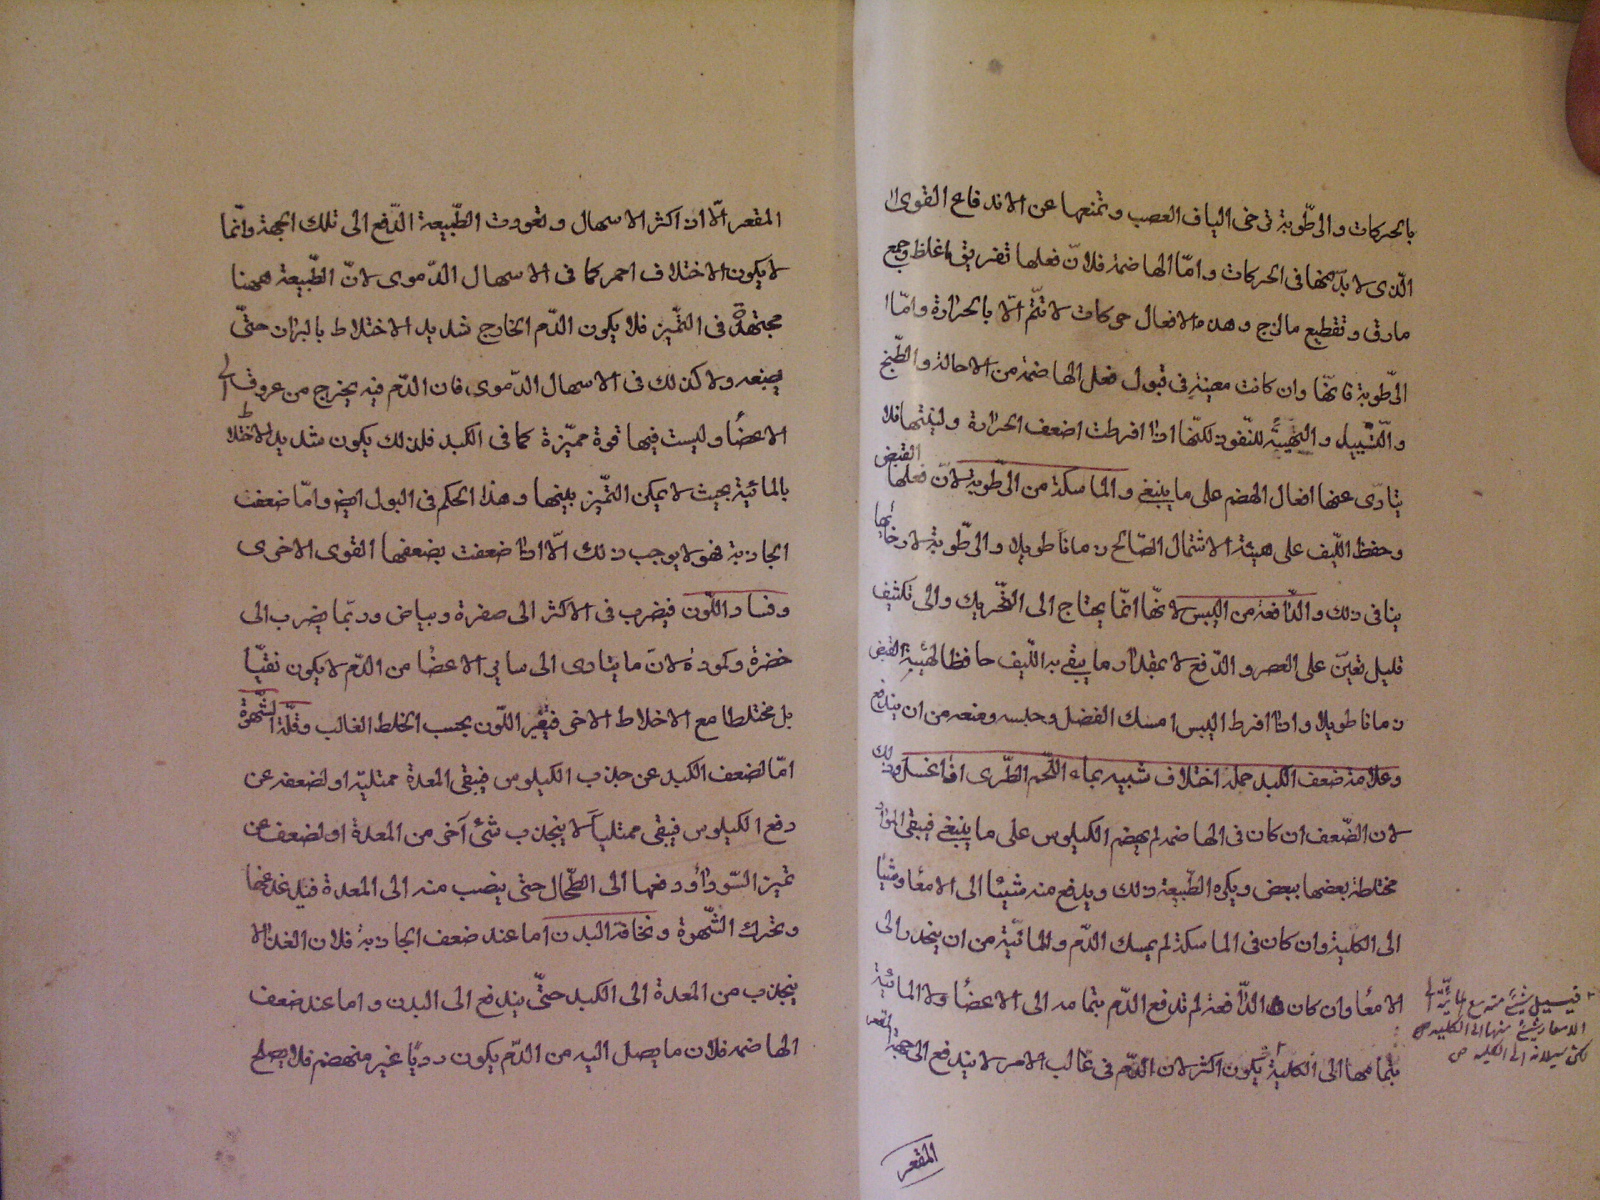 بالحركات والرّطوبة ترخى الياف العصب وتمنعها عن الاندفاع القوى ا
الّذى لا بدّ منها فى الحركات وامّا الهاضمة فلانّ فعلها تفريق ما غلظ وجمع
مارق وتقطيع مالزج وهذه الافعال حركات لا تتمّ الّا بالحرارة وامّا ا
الرّطوبة فانّها وان كانت معينة فى قبول فعل الهاضمة من الاحالة والطّبخ
والتّسييل والتهيئة للنّفوذ لكنّها اذا افرطت اضعف الحرارة ولينتها فلا
يتادّى عنها افعال الهضم على ما ينبغى والماسكة من الرّطوبة لانّ فعلها القبض
وحفظ اللّيف على هيئة الاشتمال الصّالح زمانا طويلا والرّطوبة لارخائها
ينافى ذلك والدّافعة من اليبس لانّها انّما يحتاج الى التحّريك والى تكثيف
قليل تعينّ على العصر والدّفع لا بمقدار ما يبقى به اللّيف حافظا لهيئة القبض
زمانا طويلا واذا افرط اليبس امسك الفضل وحبسه ومنعه من ان يندفع
وعلامة ضعف الكبد جملة اختلاف شبيه بماء اللّحم الطّرى اذا غسل وذلك
لان الضّعف ان كان فى الهاضمة لم يهضم الكيلوس على ما ينبغى فيبقى المواد
مختلطة بعضها ببعض ويكره الطّبيعة ذلك ويدفع منه شيئا الى الامعا وشيئا
الى الكلية وان كان فى الماسكة لم يمسك الدّم والمائيّة من ان ينحدر الى
الامعا وان كان الدّافعة لم تدفع الدّم بتمامه الى الاعضا ولا المائية
بتمامها الى الكلية يكون اكثر لان الدّم فى غالب الامر لا يندفع الى جهة
فيسيل شئ منه مع المائيّة الى
الامعا وشئ منها الى الكلية
لكن سيلانه الى الكلية ص
المقعر
المقعر الّا ان اكثر الاسهال وتعودت الطّبيعة الدّفع الى تلك الجهة وانّما
لا يكون الاختلاف احمر كما فى الاسهال الدّموى لانّ الطّبيعة ههنا
مجتهدة فى التميّز فلا يكون الدّم الخارج شديد الاختلاط بالبراز حتّى
يصبغه ولا كذلك فى الاسهال الدّموى فان الدّم فيه يخرج من عروق الى
الاعضا وليست فيها قوة مميّزة كما فى الكبد فلذلك يكون شديد الاختلاط
بالمائية بحيث لا يمكن التمّيز بينها وهذا الحكم فى البول ايض وامّا ضعف
الجاذبة فهو لا يوجب ذلك الّا اذا ضعفت بضعفها القوى الاخرى
وفساد اللّون فيضرب فى الاكثر الى صفرة وبياض وربّما يضرب الى
خضرة وكمودة لانّ ما يتادى الى ساير الاعضا من الدّم لا يكون نقيّا
بل مختلطا مع الاخلاط الاخر فيغيّر اللّون بحسب الخلط الغالب وقلّة الشّهوة
امّا لضعف الكبد عن جذب الكيلوس فيبقى المعدة ممتليّة او لضعفه عن
دفع الكيلوس فيبقى ممتلياً لا ينجذب شئ آخر من المعدة او لضعف عن
تميز السّودا ودفعها الى الطّحال حتى ينصب منه الى المعدة فيدغدغها
ويحرك الشّهوة ونحافة البدن اما عند ضعف الجاذبة فلان الغذا لا
ينجذب من المعدة الى الكبد حتّى يندفع الى البدن واما عند ضعف
الهاضمة فلان ما يصل اليه من الدّم يكون رديّا غير منهضم فلا يصلح